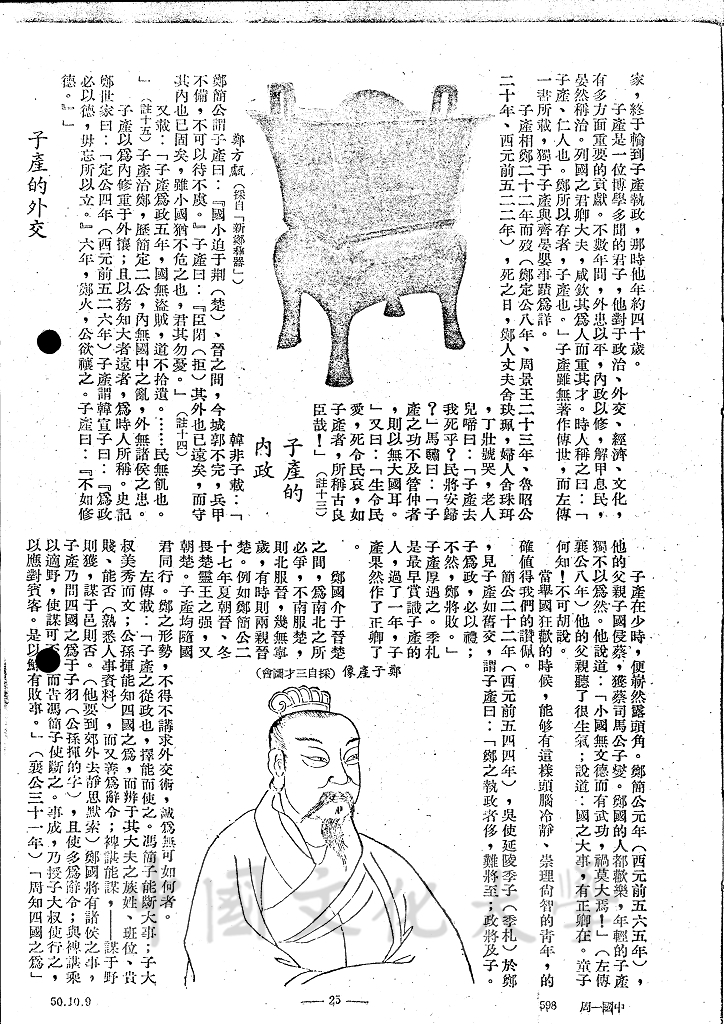 家，終于輪到子產執政，那時他年約四十歲。
子產是一位博學多聞的君子，他對于政治、外交、經濟、文化，
有多方面重要的貢獻。不數年間，外患以平，內政以修，解甲息民，
晏然稱治。列國之君卿大夫，咸欽其爲人而重其才。時人稱之曰：「
子產、仁人也。鄭所以存者，子產也。」子產雖無著作傳世，而左傳
一書所載，獨于子產與齊晏嬰事蹟爲詳。
子產相鄭二十二年而歿（鄭定公八年、周景王二十三年、魯昭公
二十年、西元前五二二年），死之日，鄭人丈夫舍玦珮，婦人舍珠珥
，丁壯號哭，老人
兒啼曰：「子產去
我死乎？民將安歸
？」馬驌曰：「子
產之功不及管仲者
，則以無大國耳。
」又曰：「生令民
愛，死令民哀，如
子產者，所稱古良
臣哉！」（註十三）
子產的
內政
韓非子載：「
鄭方甗（採自「新鄭彝器」）
鄭簡公謂子產曰：『國小迫于荆（楚）、晉之間，今城郭不完，兵甲
不備，不可以待不虞。』子產曰：『臣閉（拒）其外也已遠矣，而守
其內也已固矣，雖小國猶不危之也，君其勿憂。』（註十四）
又載：「子產爲政五年，國無盜賊，道不拾遺。……民無飢也。
」（註十五）子產治鄭，歷簡定二公，內無國中之亂，外無諸侯之患。
子產以爲內修重于外攘；且以務知大者遠者，爲時人所稱。史記
鄭世家曰：「定公四年（西元前五二六年）子產謂韓宣子曰：『爲政
必以德，毋忘所以立。』六年，鄭火，公欲禳之。子產曰：『不如修
德。』」
子產的外交
子產在少時，便嶄然露頭角。鄭簡公元年（西元前五六五年），
他的父親子國侵蔡，獲蔡司馬公子燮。鄭國的人都歡樂，年輕的子產
獨不以爲然。他說道：「小國無文德而有武功，禍莫大焉！」（左傳
襄公八年）他的父親聽了很生氣；說道：國之大事，有正卿在。童子
何知！不可胡說。
當舉國狂歡的時候，能够有這樣頭腦冷靜、崇理尚智的青年，的
確值得我們的讚佩。
簡公二十二年（西元前五四四年），吳使延陵季子（季札）於鄭
，見子產如舊交，謂子產曰：「鄭之執政者侈，難將至；政將及子。
子爲政，必以禮；
不然，鄭將敗。」
子產厚遇之。季札
是最早賞識子產的
人，過了一年，子
產果然作了正卿了
。
鄭國介于晉楚
之間，爲南北之所
必爭，不南服楚，
則北服晉，幾無寧
歲，有時則兩親晉
楚。例如鄭簡公二
十七年夏朝晉、冬
畏楚靈王之强，又
朝楚。子產均隨國
君同行。鄭之形勢，不得不講求外交術，誠爲無可如何者。
鄭子產像（採自三才圖會）
左傳載：「子產之從政也，擇能而使之。馮簡子能斷大事；子大
叔美秀而文；公孫揮能知四國之爲，而辨于其大夫之族姓、班位、貴
賤、能否（熟悉人事資料），而又善爲辭令；裨諶能謀，——謀于野
則獲，謀于邑則否。（他要到郊外去靜思默索）鄭國將有諸侯之事，
子產乃問四國之爲于子羽（公孫揮的字），且使多爲辭令；與裨諶乘
以適野，使謀可 而吿馮簡子使斷之。事成，乃授子大叔使行之，
以應對賓客。是以鮮有敗事。」（襄公三十一年）「周知四國之爲」
中國文化大學
50.10.9
—25—
598
中國一周